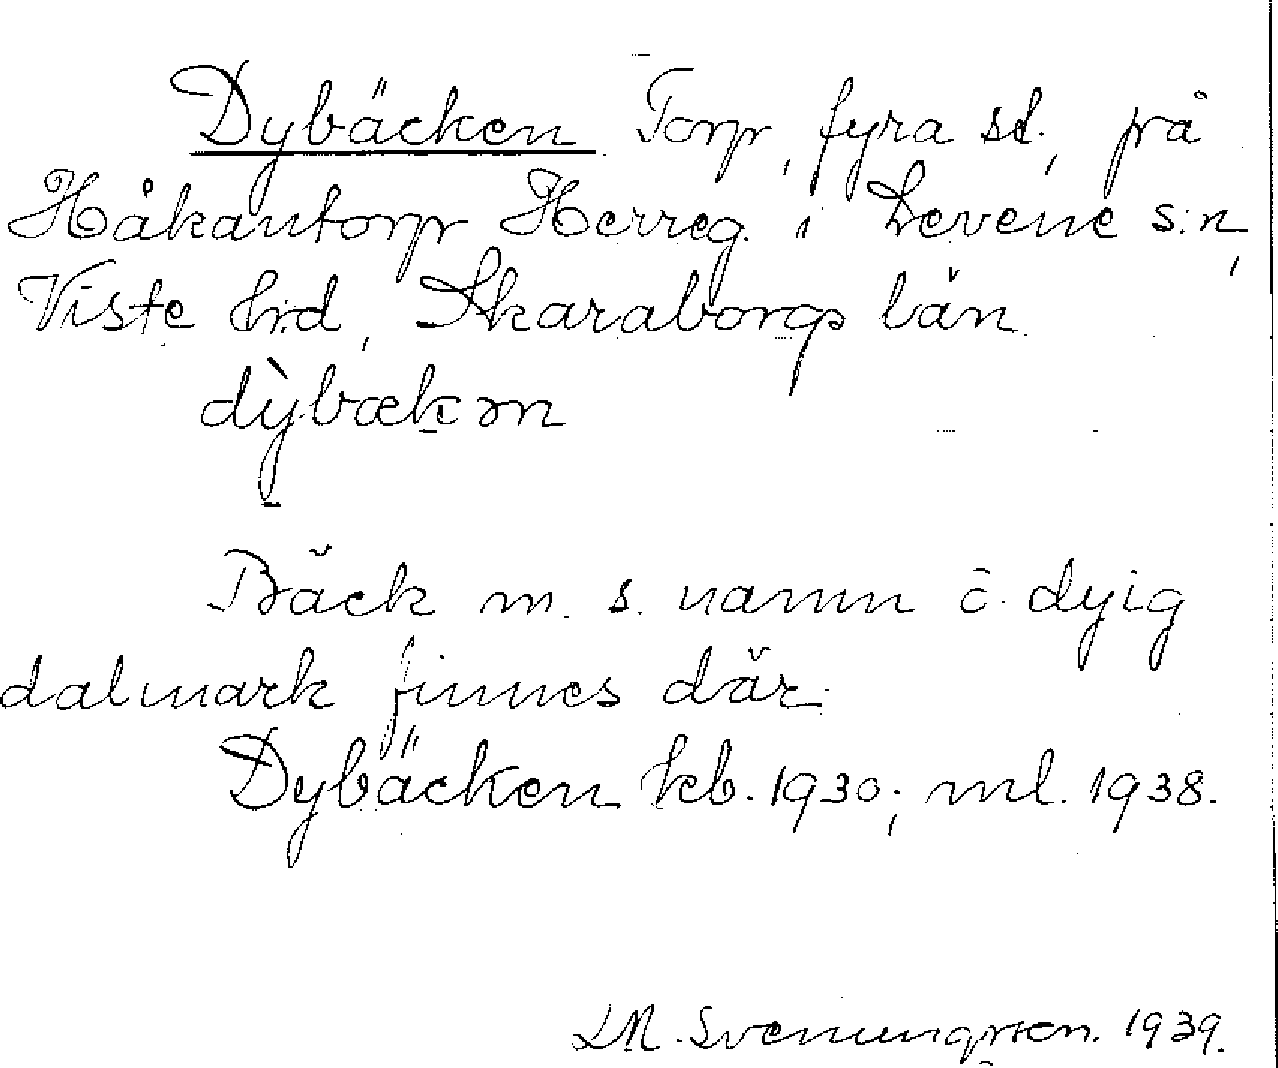 Dybäcken Torp, fyra st., på
Håkantorp Herreg. i Levene s:n,
Viste h:d, Skaraborgs län.
dỳbækən
Bäck m. s. namn o. dyig
dalmark finnes där.
Dybäcken kb. 1930; ml. 1938.
LM. Svenungsson. 1939.